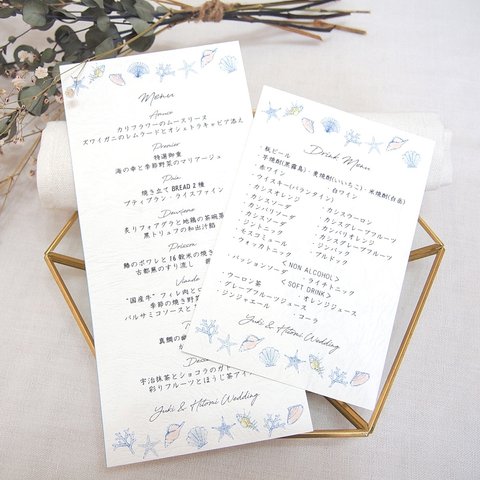 Menu
Amuse
カリフラワーのムースリーズ
ズワイガニのレムラードとオシェトラキャビア添え
Premier
特選御重
海の幸と季節野菜のマリアージュ
Pain
焼き立て BREAD 2 種
プティブラン・ライスファイン
Deuxieme
炙りフォアグラと地鶏の茶碗蒸
黒トリュフの和出汁餡
Poisson
鮸のポワレと 16 穀米の焼き
古都黒のすり流し
Viande
"国産牛" フィレ肉と
季節の焼き野菜
バルサミコソースと
真鯛の
宇治抹茶とショコラのガト
彩りフルーツとほうじ茶アイ
Yuki & Hitomi Wedding
Drink Menu
・瓶ビール
・芋焼酎(黒霧島)・麦焼酎(いいちこ)・米焼酎(白岳)
・赤ワイン ・白ワイン
・ウイスキー(バランタイン)
・カシスオレンジ ・カシスウーロン
・カシスソーダ ・カシスグレープフルーツ
・カンパリソーダ ・カンパリオレンジ
・カシスソーダ ・カシスグレープフルーツ
・ジントニック ・ジンバック
・モスコミュール ・ブルドック
・ウォッカトニック
< NON ALCOHOL >
・パッションソーダ ・ライチトニック
< SOFT DRINK >
・ウーロン茶 ・オレンジジュース
・グレープフルーツジュース
・ジンジャエール ・コーラ
Yuki & Hitomi Wedding